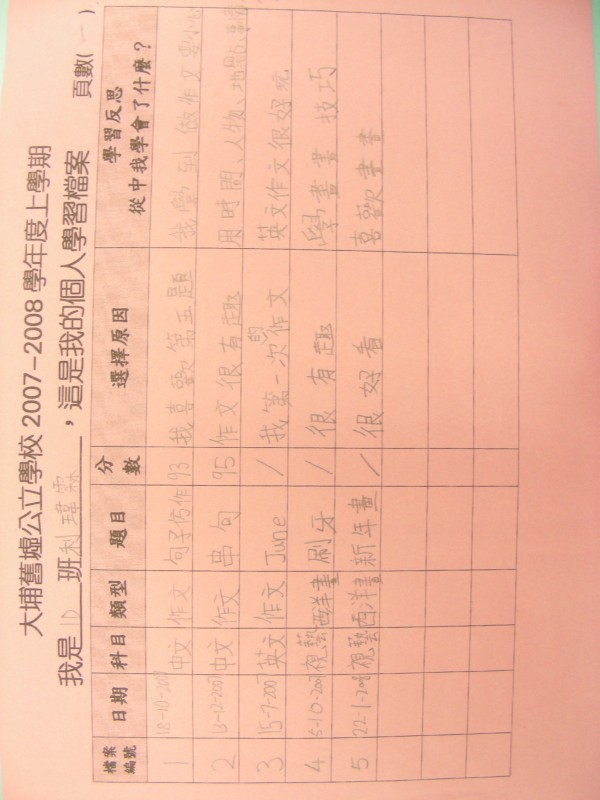 大埔舊墟公立學校 2007-2008 學年度上學期
我是 1D 班利瑋霖，這是我的個人學習檔案 頁數(一)
檔案編號 日期 科目 類型 題目 分數 選擇原因 學習反思 從中我學會了什麼？
1 18-10-2007 中文 作文 句子仿作 93 我喜歡第五題 我學到做作文要小心
2 13-12-2007 中文 作文 串句 95 作文很有趣 用時間、人物、地點
3 15-7-2007 英文 作文 June / 我第一次的作文 英文作文很好玩
4 5-10-2007 視藝 西洋畫 刷牙 / 很有趣 學畫畫技巧
5 22-1-2008 視藝 西洋畫 新年畫 / 很好看 喜歡畫畫